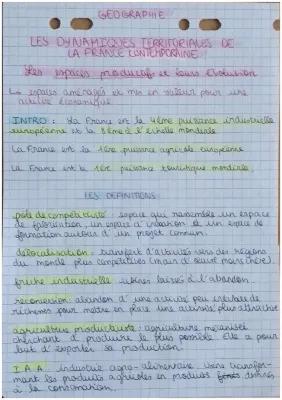 GEOGRAPHIE
LES DYNAMIQUES TERRITORIALES DE
LA FRANCE CONTEMPORAINE
Les espaces productifs et leurs évolution
espaces aménagés et mis en valeur pour une
activité économique.
INTRO : La France est la 4ème puissance industrielle
européenne et la 8ème à l'échelle mondiale
La France est la 1ère puissance agricole européenne
La France est la 1ère puissance touristique mondiale.
LES DEFINITIONS
pôle de compétitivité : espace qui rassemble un espace
de fabrication, un espace d' et un espace de
formation autour d'un projet commun.
délocalisation : transfert d'activités vers des régions
du monde plus compétitives (main d'œuvre moins chère).
friche industrielle : usines laissées à l'abandon
reconversion: abandon d'une activité peu de
richesses pour mettre en place une activité plus attractive
agriculture productiviste : agriculture mécanisée
cherchant à produire le plus possible. Elle a pour
but d'exporter sa production.
I.A.A : industrie agro-alimentaire. usine transfor-
mant les produits agricoles en produits destinés
à la consommation.